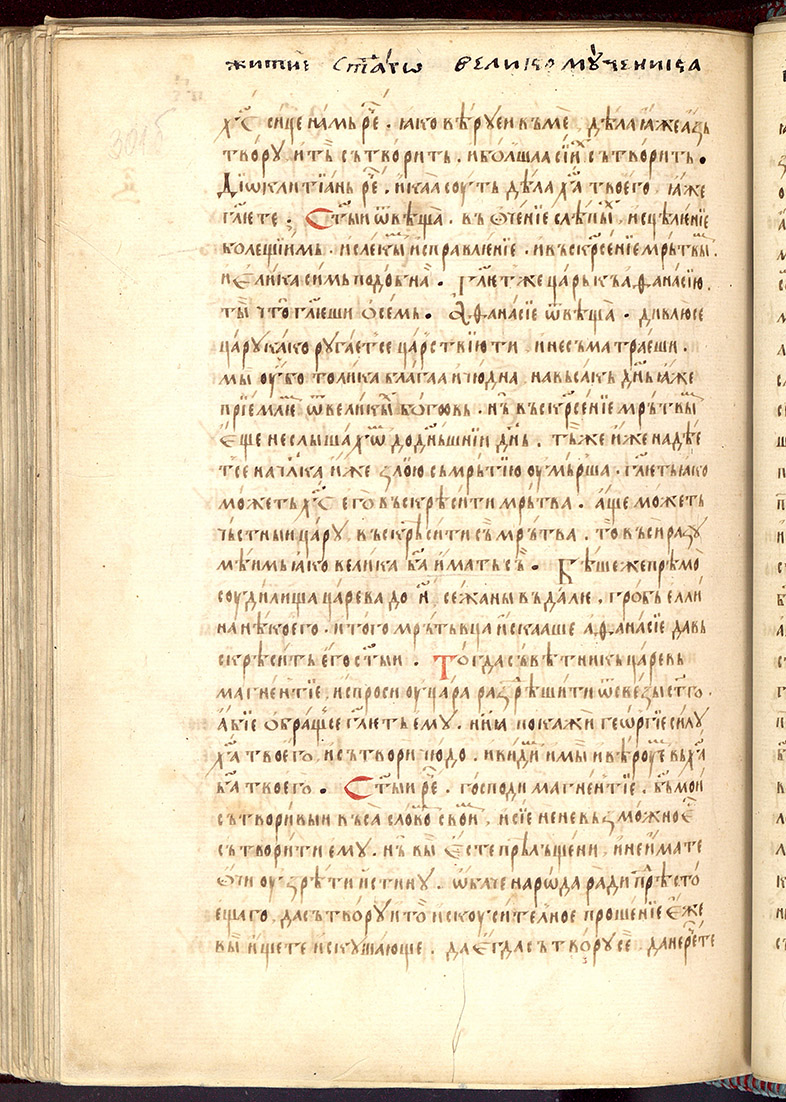 житїе ст҃аго великомꙋченика
хс҃ сице намь рⷱ҇е . ꙗко вѣрꙋеи въ ме , дѣла ꙗже азь
творꙋ и тъ сътворить . и болша сиⷯ сътворить .
Дїѡклитїань рⷱ҇е , и каа соуть дѣла хⷭ҇а твоего , ꙗже
гл҃ете ; Ст҃ыи ѿвѣща . въ ѻченїе слѣпыⷨ , исцѣленїе
болещїимь . и слѣкыⷨ исправленїе . и въскрⷭ҇енїе мрътвыⷨ .
и елика симь подобна . Гл҃ет же царь къ аѳанасїю .
ты что гл҃еши ѻ семь . Аѳанасїе ѿвѣща . дивлюсе
царꙋ како рꙋгаетсе царствїю ти , и несъматраеши .
мы оубо толика блага и чюдна , на въсакь дн҃ь ꙗже
прїемлѥ ѿ великыⷯ богѡвь . нъ въскрⷭ҇енїе мрътвыⷨ
еще не слышахѡⷨ до дн҃ьшнїи дн҃ь . тъ же иже надѣе
тсе на чл҃ка иже злою съмрътїю оумьрша . гл҃еть ꙗко
можеть хс҃ его въскрѣсити мрътва . аще можеть
чьстныи царꙋ , въскрѣсити съ мрътва . то въси разꙋ
мѣимь ꙗко велика ба҃ имать съ . Бѣше же прѣмо
соудилища царева до и҃ , сежаны въ далю , гробь елли
на нѣкоего . и того мрътьвца искааше аѳанасїе да вь
скрѣсить его ст҃ыи . Тогда съвѣтникь царевь
магнентїе , испроси оу цара разрѣшити ѿ свезы ст҃го .
абїе обращсе гл҃еть емꙋ . нн҃ꙗ покажи геѡргїе силꙋ
ха҃ твоего , и сътвори чюдо . и видим и мы и вѣроуе въ ха҃
ба҃ твоего . Ст҃ыи рⷱ҇е . господи магнентїе , бъ҃ мои
сътворивыи въса словоⷨ своиⷨ , и сїе не невьзможно еⷭ҇
сътворити емꙋ . нъ вы есте прѣльщени , и не имате
ѻчи оузрѣти истинꙋ . ѡбаче народа ради прѣⷣсто
ещаго , да сътворꙋ и то искоусителное прошенїе еже
вы ищете искꙋшающе . да егда сътворꙋ се . да не рⷱ҇ете